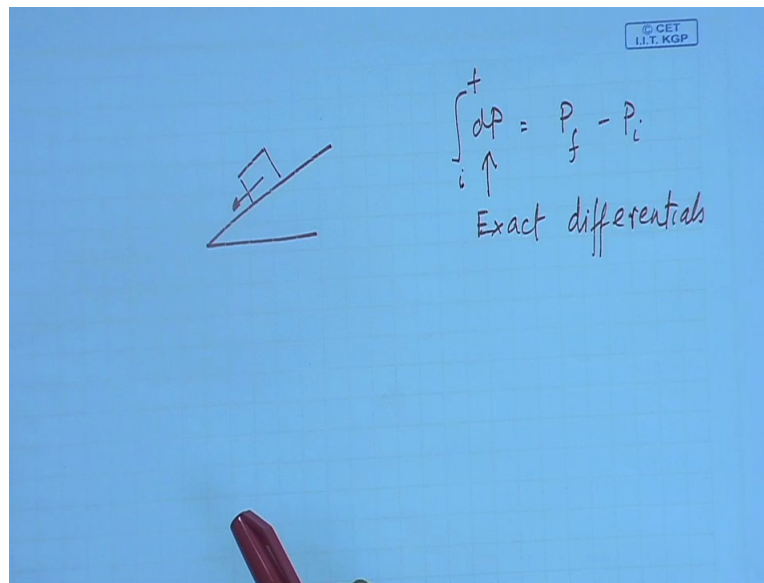 © CET
I.I.T. KGP
∫_i^f dP = P_f - P_i
↑
Exact differentials